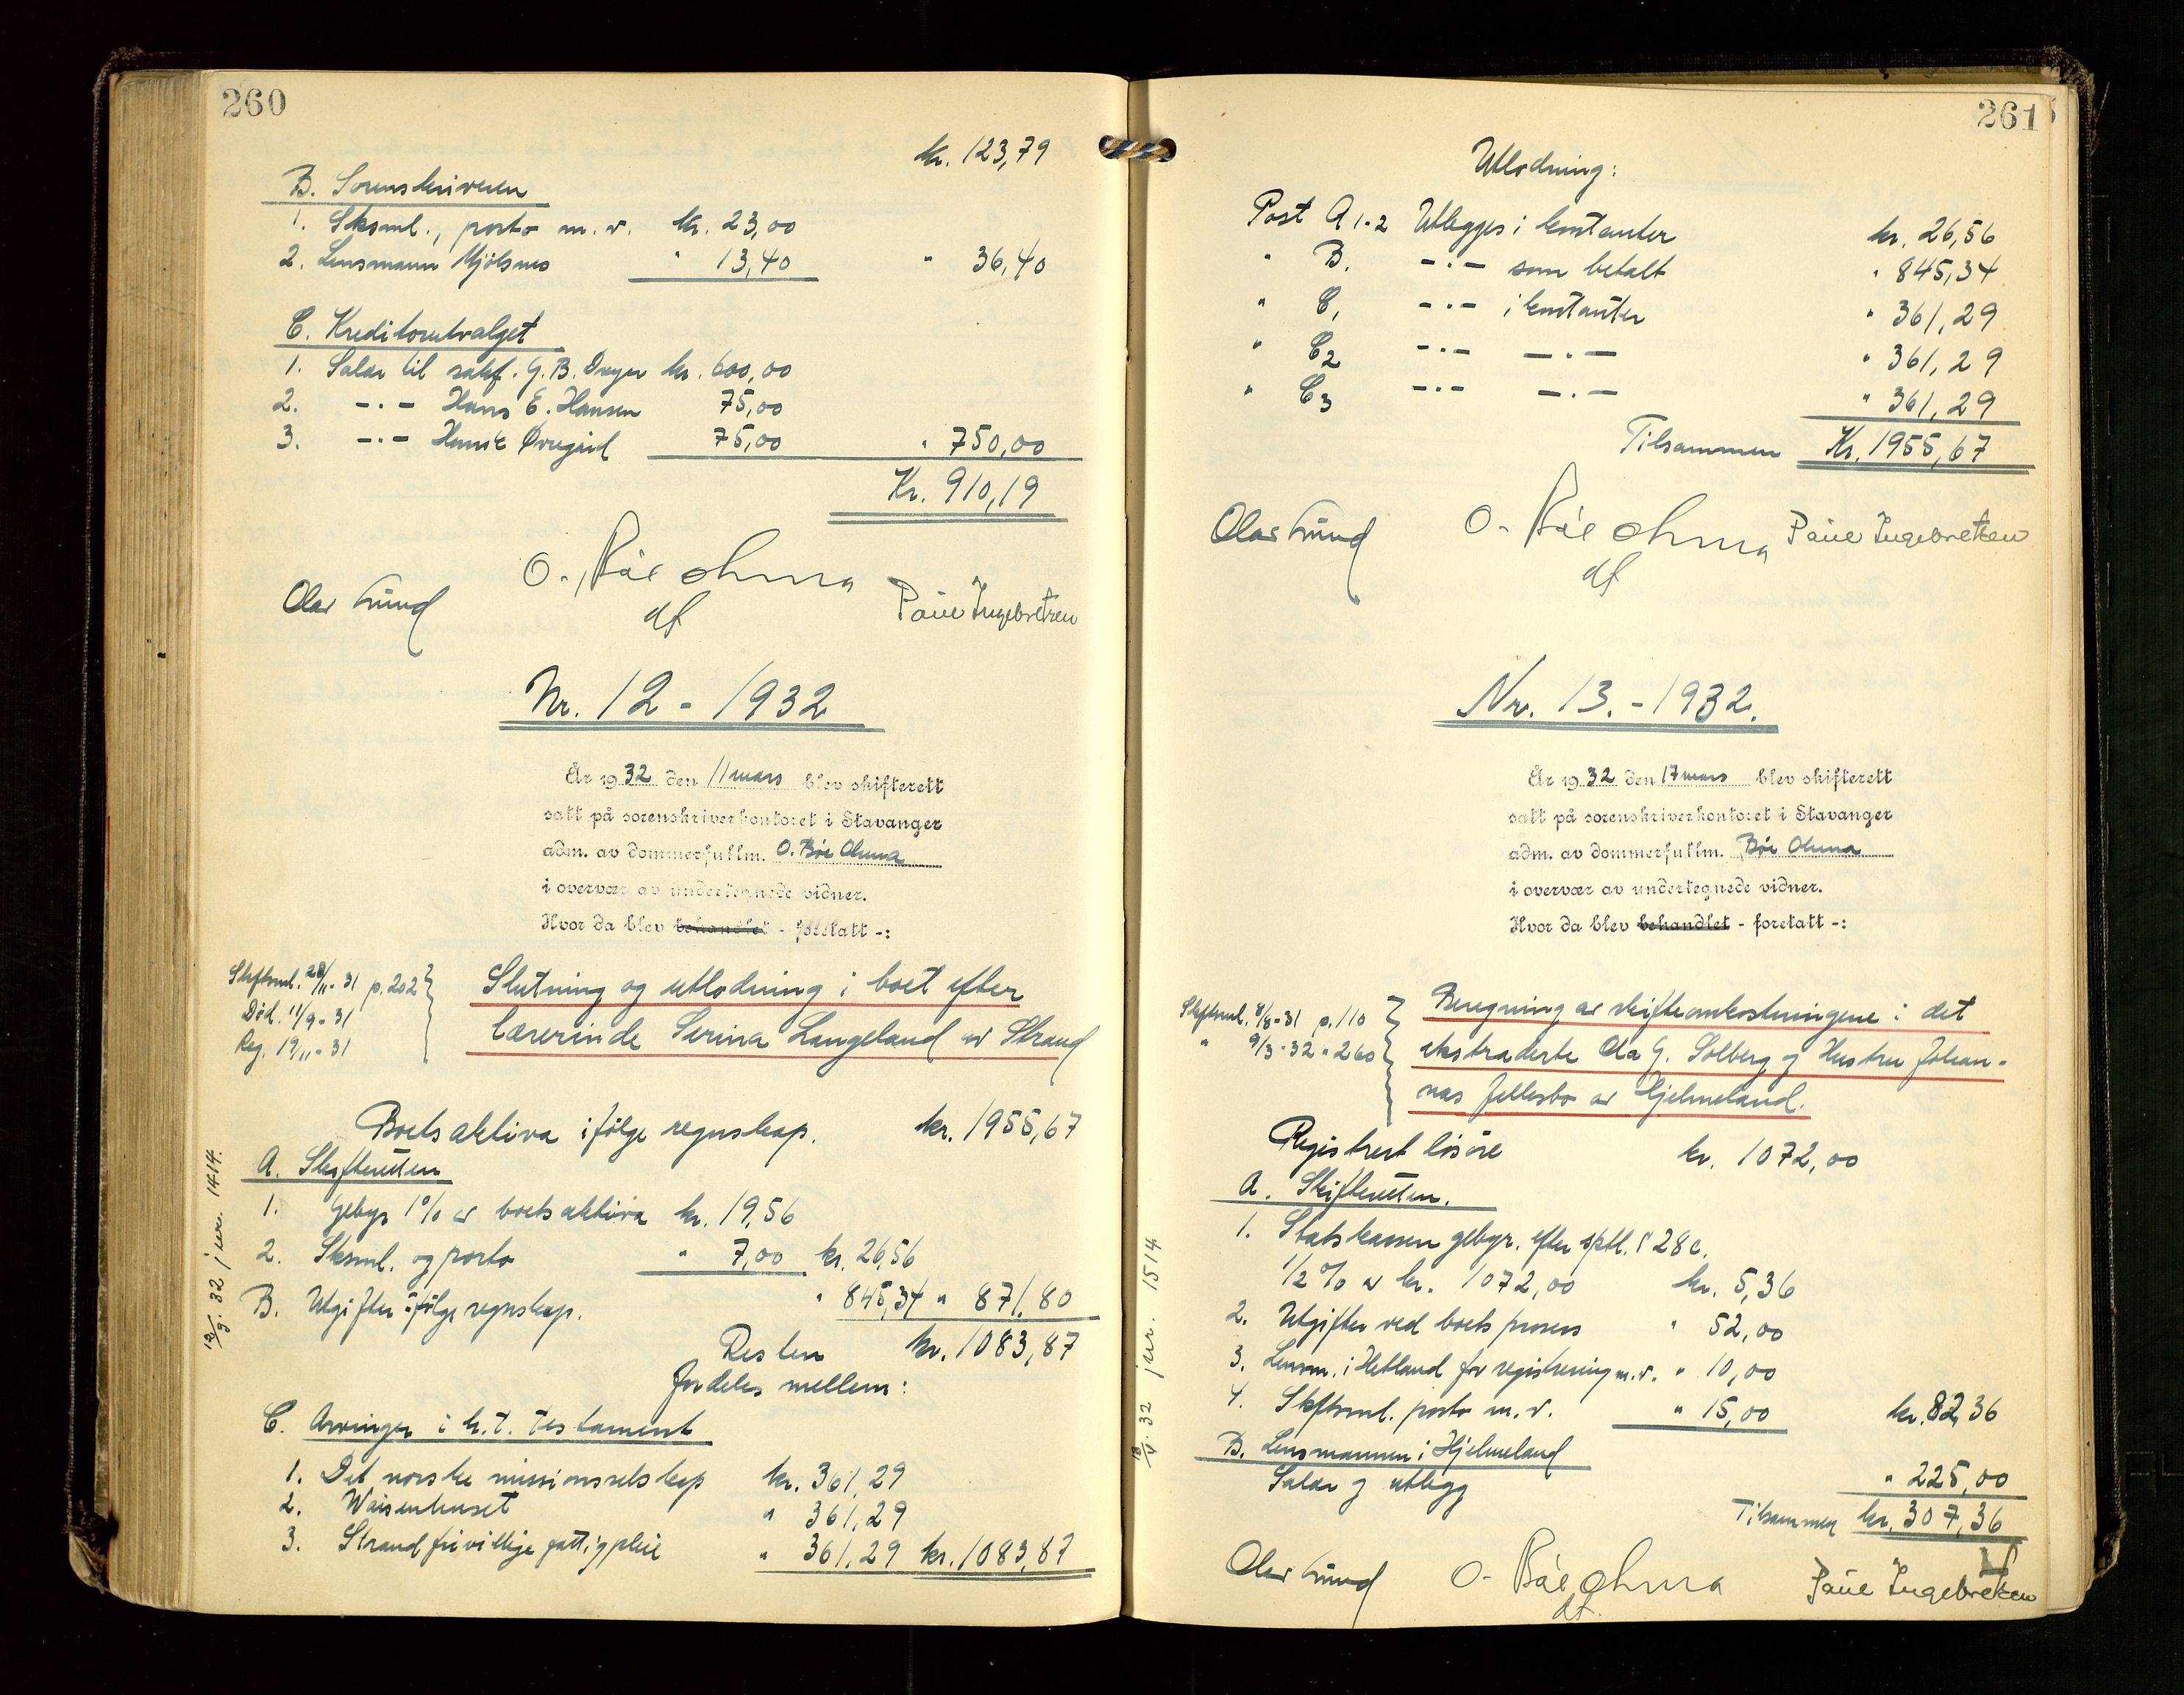 260
kr. 123,79
B. Sorenskriveren
1. Sksml., porto m. v. kr. 23,00
2. Lensmann Mjölsnes " 13,40 " 36,40
C. Kreditorutvalget
1. Salær til sakf. G. B. Dreyer kr. 600,00
2. -·- Hans E. Hansen 75,00
3. -·- Øvregård 75,00 " 750,00
Kr. 910,19
Olav Lund O. Bøe Ohma Paul Ingebretsen
df
Nr. 12 - 1932
År 1932 den 11 mars blev skifterett
satt på sorenskriverkontoret i Stavanger
adm. av dommerfullm. O. Bøe Ohma
i overvær av undertegnede vidner.
Hvor da blev behandlet - foretatt -:
Skiftsml. 28/11-31 p. 202
Död. 11/9-31
Reg. 19/11-31
Slutning og utlodning i boet efter
lærerinde Serina Langeland av Strand
Boets aktiva ifölge regnskap. kr. 1955,67
A. Skifteretten
1. Gebyr 1% av boets aktiva kr. 19,56
2. Sksml. og porto " 7,00 kr. 26,56
B. Utgifter ifölge regnskap. " 845,34 " 871,80
Resten kr. 1083,87
fordeles mellem:
C. Arvinger i h. t. testament
1. Det norske missionsselskap kr. 361,29
2. Waisenhuset " 361,29
3. Strand frivillige fattigpleie " 361,29 kr. 1083,87
32 jnr. 1414.
261
Utlodning:
Post A 1-2 Utlegges i kontanter kr. 26,56
" B. -·- som betalt " 845,34
" C, -·- i kontanter " 361,29
" C2 -·- -·- " 361,29
" C3 -·- -·- " 361,29
Tilsammen Kr. 1955,67
Olav Lund O. Bøe Ohma Paul Ingebretsen
df
Nr. 13. - 1932.
År 1932 den 17 mars blev skifterett
satt på sorenskriverkontoret i Stavanger
adm. av dommerfullm. Bøe Ohma
i overvær av undertegnede vidner.
Hvor da blev behandlet - foretatt -:
Skiftsml. 8/8-31 p. 110
" 9/3-32 " 260
Beregning av skifteomkostningene i det
ekstraderte Ola G. Solberg og Hustru Johan-
nas fellesbo av Hjelmeland.
Registrert lösöre kr. 1072,00
A. Skifteretten.
1. Statskassen gebyr. efter sptl. § 28 c.
1/2 % av kr. 1072,00 kr. 5,36
2. Utgifter ved boets prosess " 52,00
3. Lensm. i Hetland for registrering m. v. " 10,00
4. Skiftsml. porto m. v. " 15,00 kr. 82,36
B. Lensmannen i Hjelmeland
Salær og utlegg " 225,00
Tilsammen kr. 307,36
Olav Lund O. Bøe Ohma Paul Ingebretsen
df.
32 jnr. 1514